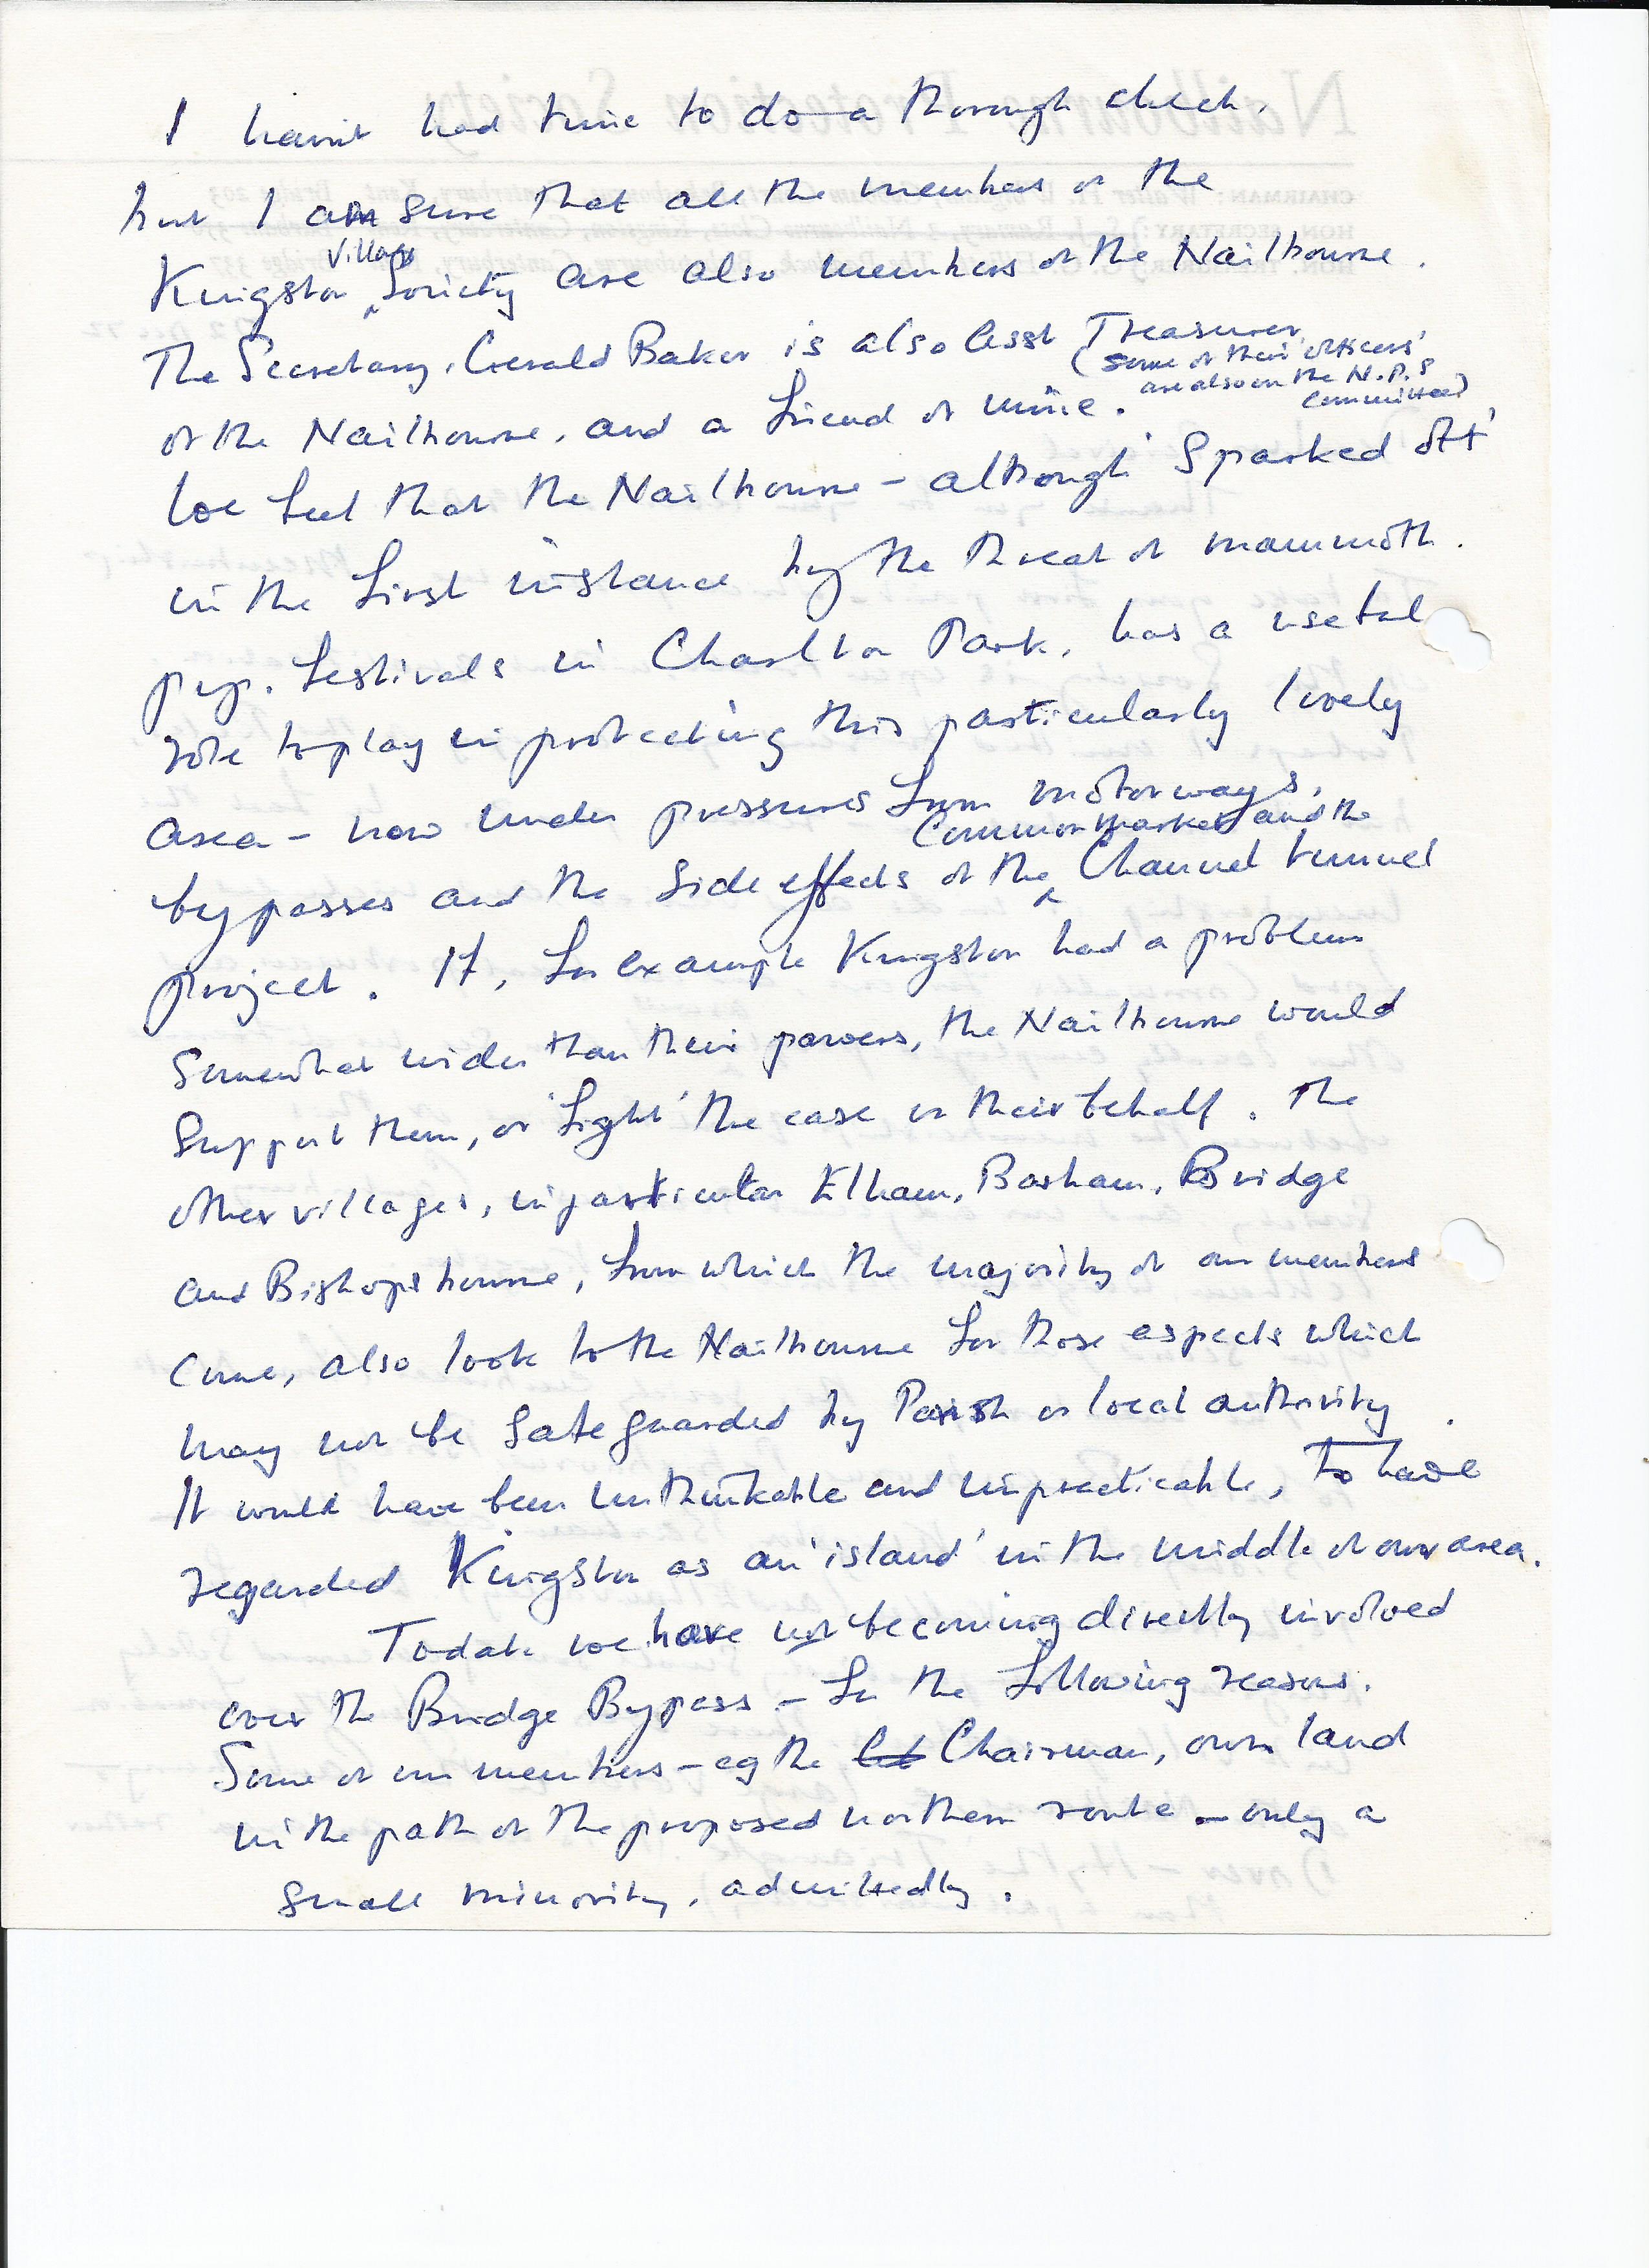 I havn't had time to do a thorough check,
but I am sure that all the members of the
Village
Kingston Society are also members of the Nailbourne.
The Secretary, Gerald Baker is also Asst Treasurer
(some of their 'officers'
are also on the N.P.S
committee)
of the Nailbourne, and a friend of mine.
We feel that the Nailbourne - although 'sparked off'
in the first instance by the threat of mammoth
pop. festivals in Charlton Park, has a useful
role to play in protecting this particularly lovely
area - now under pressures from motorways,
Common Market and the
bypasses and the side effects of the Channel tunnel
project. If, for example Kingston had a problem
somewhat wider than their powers, the Nailbourne would
support them, or 'fight' the case on their behalf. The
other villages, in particular Elham, Barham, Bridge
and Bishopsbourne, from which the majority of our members
come, also look to the Nailbourne for those aspects which
may not be safeguarded by Parish or local authority.
It would have been unthinkable and impracticable, to have
regarded Kingston as an 'island' in the middle of our area.
To date we have not becoming directly involved
over the Bridge Bypass - for the following reasons.
Some of our members - eg the Chairman, own land
in the path of the proposed northern route - only a
small minority, admittedly.